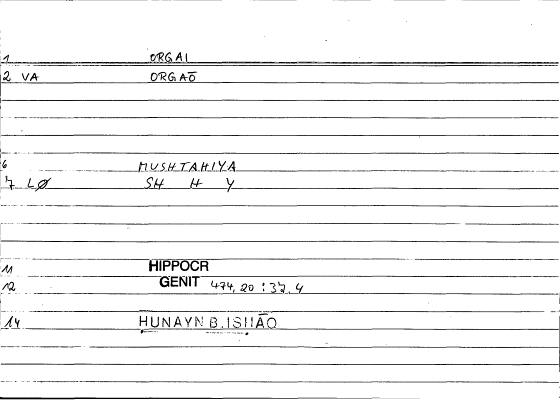 1 ORGAI
2 VA ORGAŌ
6 MUSHTAHIYA
7 LØ SH H Y
11 HIPPOCR
12 GENIT 474,20 : 32,4
14 HUNAYN B. ISḤĀQ